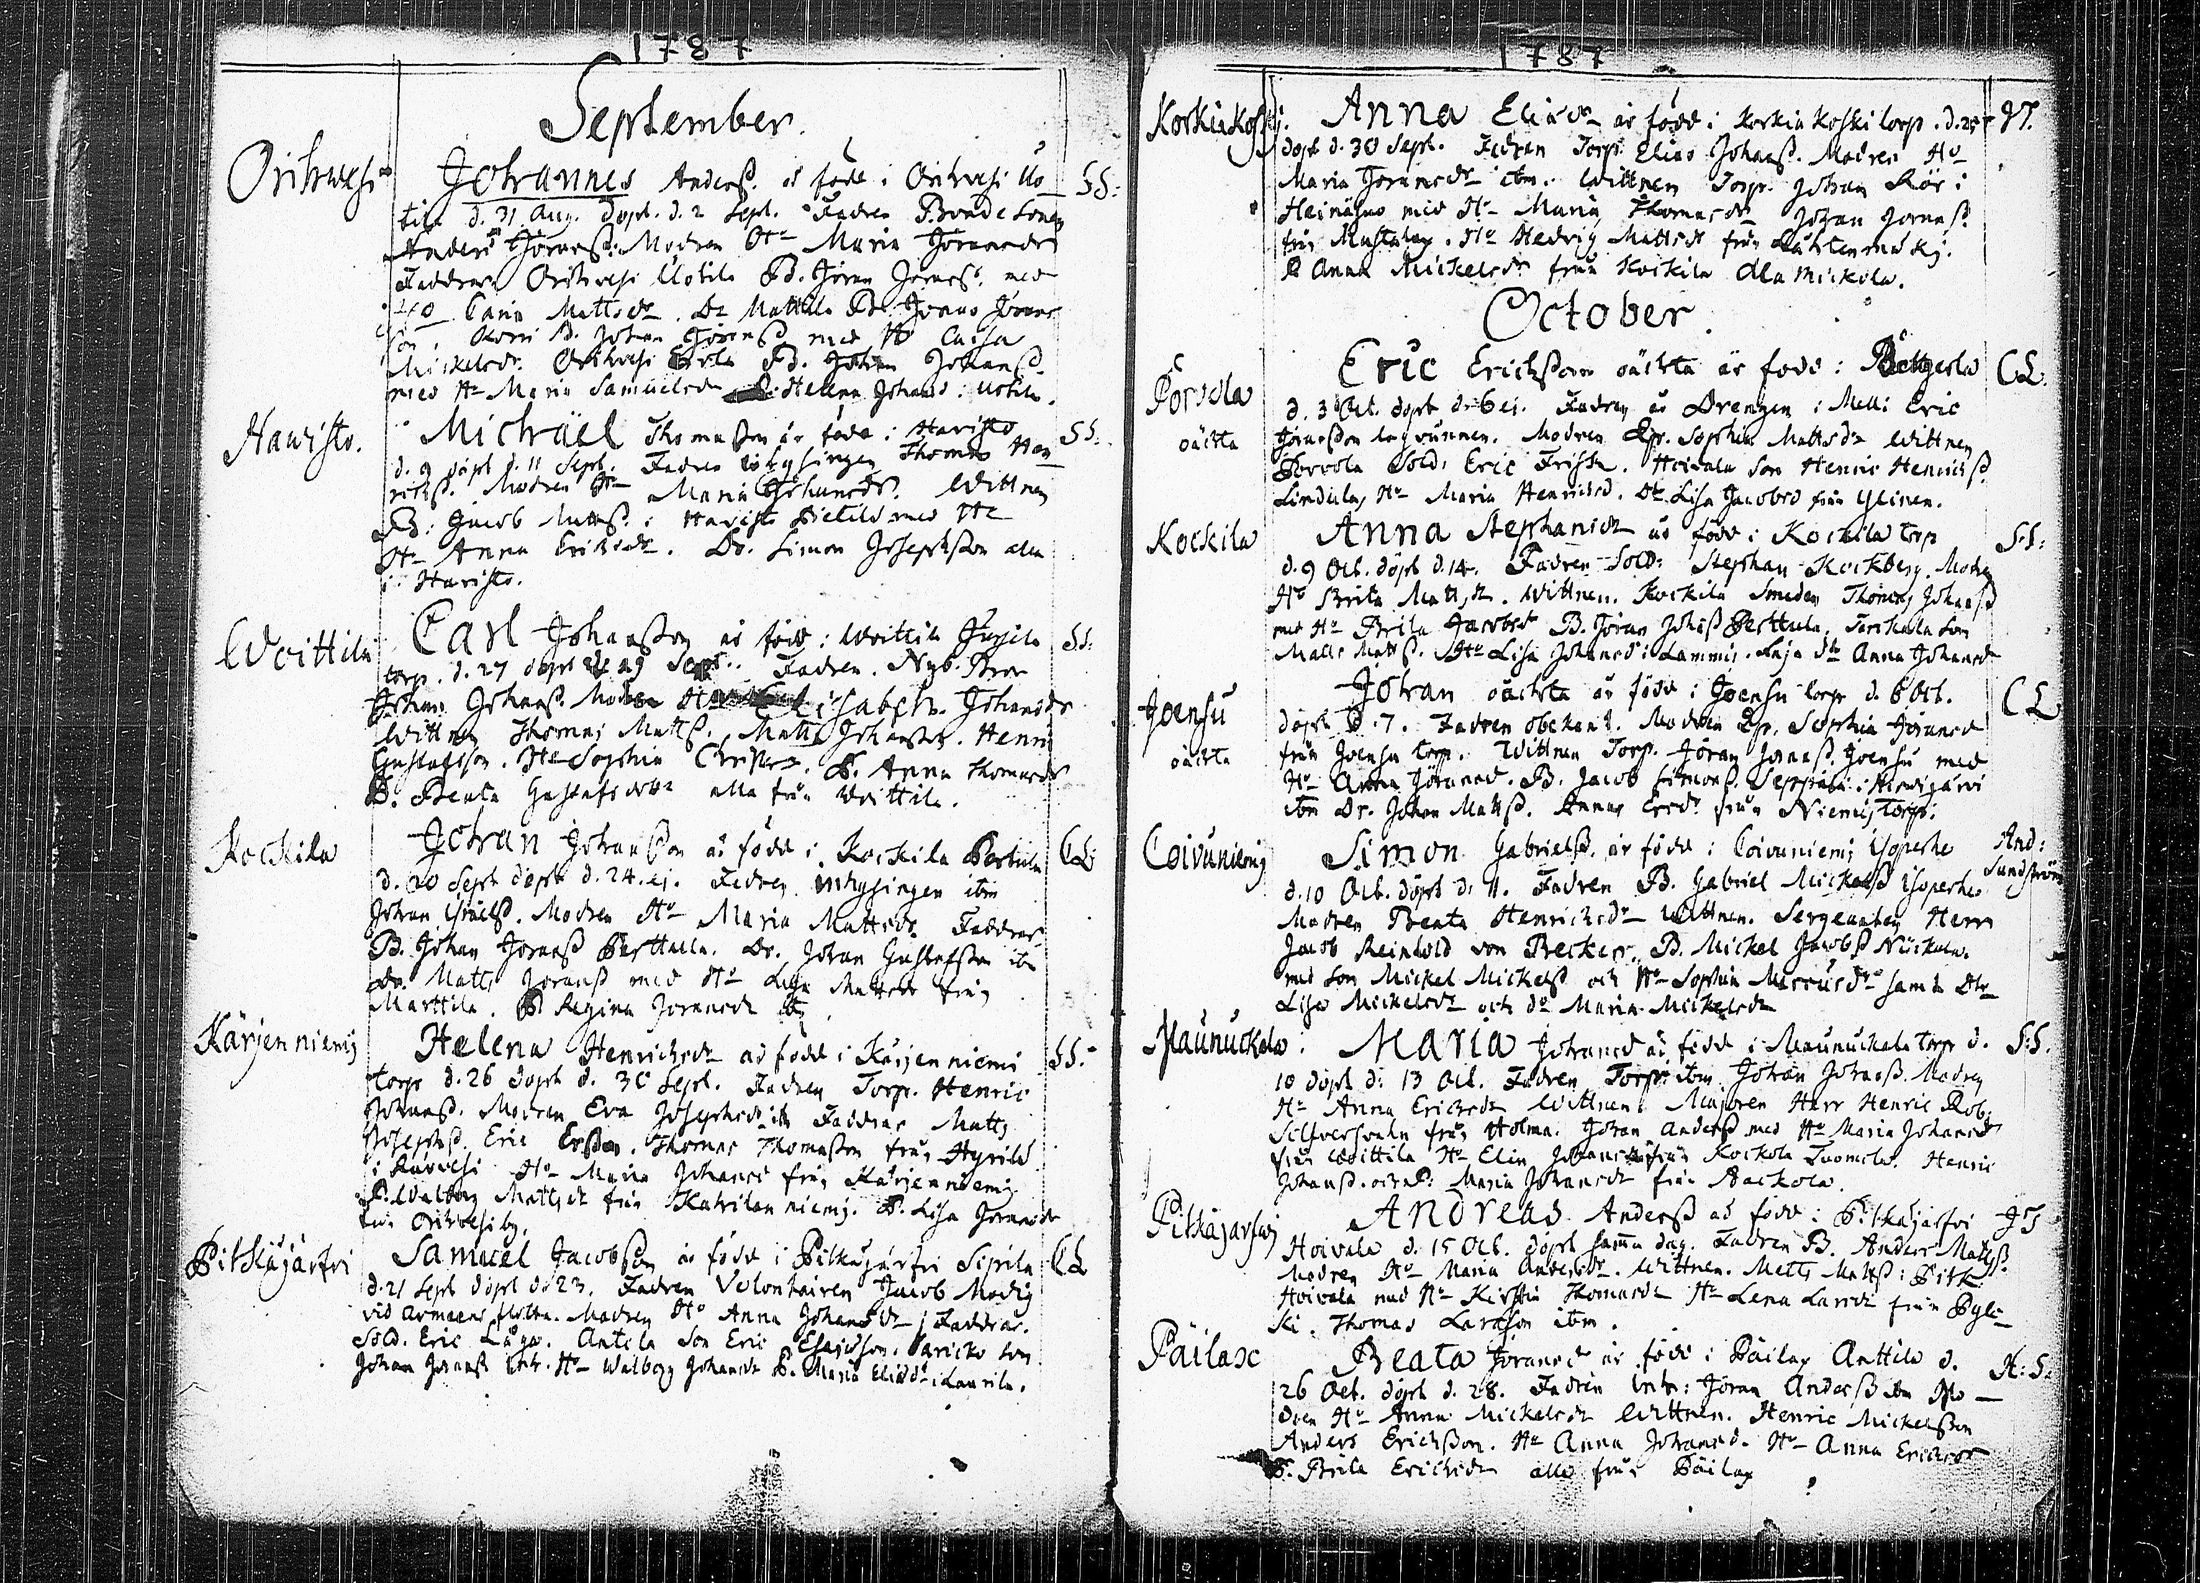 1787
September.
Orihwesi
Johannes Anderss. är född i Orihvesi Uo
SS:
tila d. 31 Aug. döpt. d. 2 Sept. Fadren Bonde Sonen
Anders Jöranss. Modren Hu Maria Jöransdr
Faddrar Orihvesi Uotila Bd. Jöran Jöranss. med
Hu Carin Mattsdr. Dr Mattila Bd. Jonas Jörans
son. B. Johan Jöranss med Hu Caisa
Mickelsdr. Orihvesi Bd. Johan Johanss.
med Hu Maria Samuelsdr P. Helena Johansd: Uotila.
Hawisto.
Michäel Thomasson är född i Havisto
SS:
d. 9 döpt d. 11 Sept. Fadren Inhysingen Thomas Hen
richss. Modren Hu Maria Johansdr. Wittnen
B: Jacob Mattss. i Havisto Pietilä med Hu
Hu Anna Ericsdr. Dr. Simon Josephsson alla
i Havisto.
Woittila
Carl Johansson är född i Woittila
SS:
torp. d. 27 döpt d. 29 Sept. Fadren. Nyb.
Johan Johanss. Modren Hu Elisabeth Johansdr
Wittnen Thomas Mattss. Matts Johansson. Henric
Gustafsson. Hu Sophia Christersdr. P. Anna Thomasdr
P. Beata Gustafsdr alla från Woittila.
Kockila
Johan Johansson är född i Kockila Perttula
CL
d. 20 Sept döpt d. 24. ej. Fadren inhysingen ibm
Johan Israelss. Modren Hu Maria Mattsdr. Faddrar
B. Johan Jöranss Perttula. Dr. Johan Gustafsson ibm
Dr. Matts Jöranss med Hu Mattsdr från
Marttila. P. Regina Jöransdr ibm
Kärjenniemj
Helena Henrichsdr är född i Kärjenniemi
SS:
torp d. 26 döpt d. 30 Sept. Fadren Torp. Henric
Johanss. Modren Eva Josephsdr ibm Faddrar Matts
Josephss. Eric Ersson. Thomas Thomasson från Hyrilä
i Hu Maria Johansd från Kärjenniemj
P. Walborg Mattsdr från Kahrilanniemj. P. Lisa Jöransdr
från Orihvesi by.
Pitkäjärfvi
Samuel Jacobsson är född i Pitkäjärfvi Sipila
CL
d. 21 Sept döpt d. 23. Fadren Volontairen Jacob Modig
vid armeens flotta. Modren Hu Anna Johansdr; Faddrar.
Sold. Eric Antila Son Eric Esaiasson. son
Johan Jöranss Hu Walborg Johansdr P. Maria Eliædr i Laurila.
1787
Korkiakoski.
Anna Eliædr är född i Korkiakoski torp. d. 28
JT.
döpt d. 30 Sept. Fadren Torp: Elias Johanss. Modren Hu
Maria Jöransdr ibm. Wittnen Torp. Johan Rör i
med Hu Maria Thomasdr Johan Jöranss
från Hu Hedvig Mattsdr från
P Anna Mickelsdr från Kockila Ala Mickola.
October
Porvola
oäckta
Eric Ericksson oäckta är född i
CL:
d. 3 Oct. döpt d. 6 ej. Fadren är Drengen i Eric
Jöransson Modren Qp. Sophia Mattsdr Wittnen
Porvola Sold: Eric Frisk. Hoivala Son Henric Henricss
Lindula, Hu Maria Henricsd. Dr Lisa Jacobsd från Ylinen.
Kockila
Anna Stephanidr är född i Kockila torp
S:S:
d. 9 Oct. döpt d. 14. Fadren Sold: Stephan Kockberg. Modren
Hu Brita Mattsdr. Wittnen. Kockila Smeden Thomas Johanss
med Hu Brita Jacobsdr B. Jöran Johanss Perttula, Son
Matts Mattss. Hu Lisa Johansd i Lammi. dr Anna Johansdr
Joensu
oäckta
Johan oäckta är född i Joensu torp d. 6 Oct.
CL
döpt d. 7. Fadren obekant. Modren Qp. Sophia Jöransd
från Joensu torp. Wittnen Torp. Jöran Jöranss. Joensu med
Hu Anna Jöransd. B. Jacob Simonss. Seppälä i Hirvijärvi
ibm Dr. Johan Mattss. Annas Ersdr från Niemis torp.
Coivuniemj
Simon Gabrielss. är född i Coivuniemj Isoperhe
And: Sundström
d. 10 Oct. döpt d. 11. Fadren B. Gabriel Mickelss Isoperhe
Modren Beata Henrichsdr Wittnen. Sergeanten Herr
Jacob Reinhold von Becker, B. Mickel Jacobss Nickula.
med Son Mickel Mickelss och Hu Sophia Marcusdr samt Dr
Lisa Mickelsdr och dr Maria Mickelsdr
Maunuckala
Maria Johansd är född i Maunuckala torp d.
S:S.
10 döpt d: 13 Oct. Fadren Torp: ibm Johan Johanss. Modren
Hu Anna Ericsdr Wittnen: Majoren Herr Henric Rob:
Silfversvahn från Holma. Johan Anderss med Hu Maria Johansd
från Woittila Hu Elin Johansdr från Kockola Tuomola. Henric
Johanss. och P: Maria Johansdr från Kackola.
Pitkäjärfvi
Andreas Anderss är född i Pitkäjärfvi
JT
Hoivala d. 15 Oct. döpt samma dag. Fadren B. Anders Mattss.
Modren Hu Maria Andersdr. Wittnen. Matts Mattss i Pitk:
Hoivala med Hu Kirstin Thomasdr Hu Lena Larsdr från Pyls
ki. Thomas Larsson ibm.
Päilax
Beata Jöransd är född i Päilax Anttila d.
H:S:
26 Oct. döpt d. 28. Fadren Jöran Anderss ibm Mo
dren Hu Anna Mickelsdr Wittnen. Henric Mickelsson
Anders Ericksson. Hu Anna Johansd. Hu Anna Ericsdr
P. Brita Ericksdr alla från Päilax